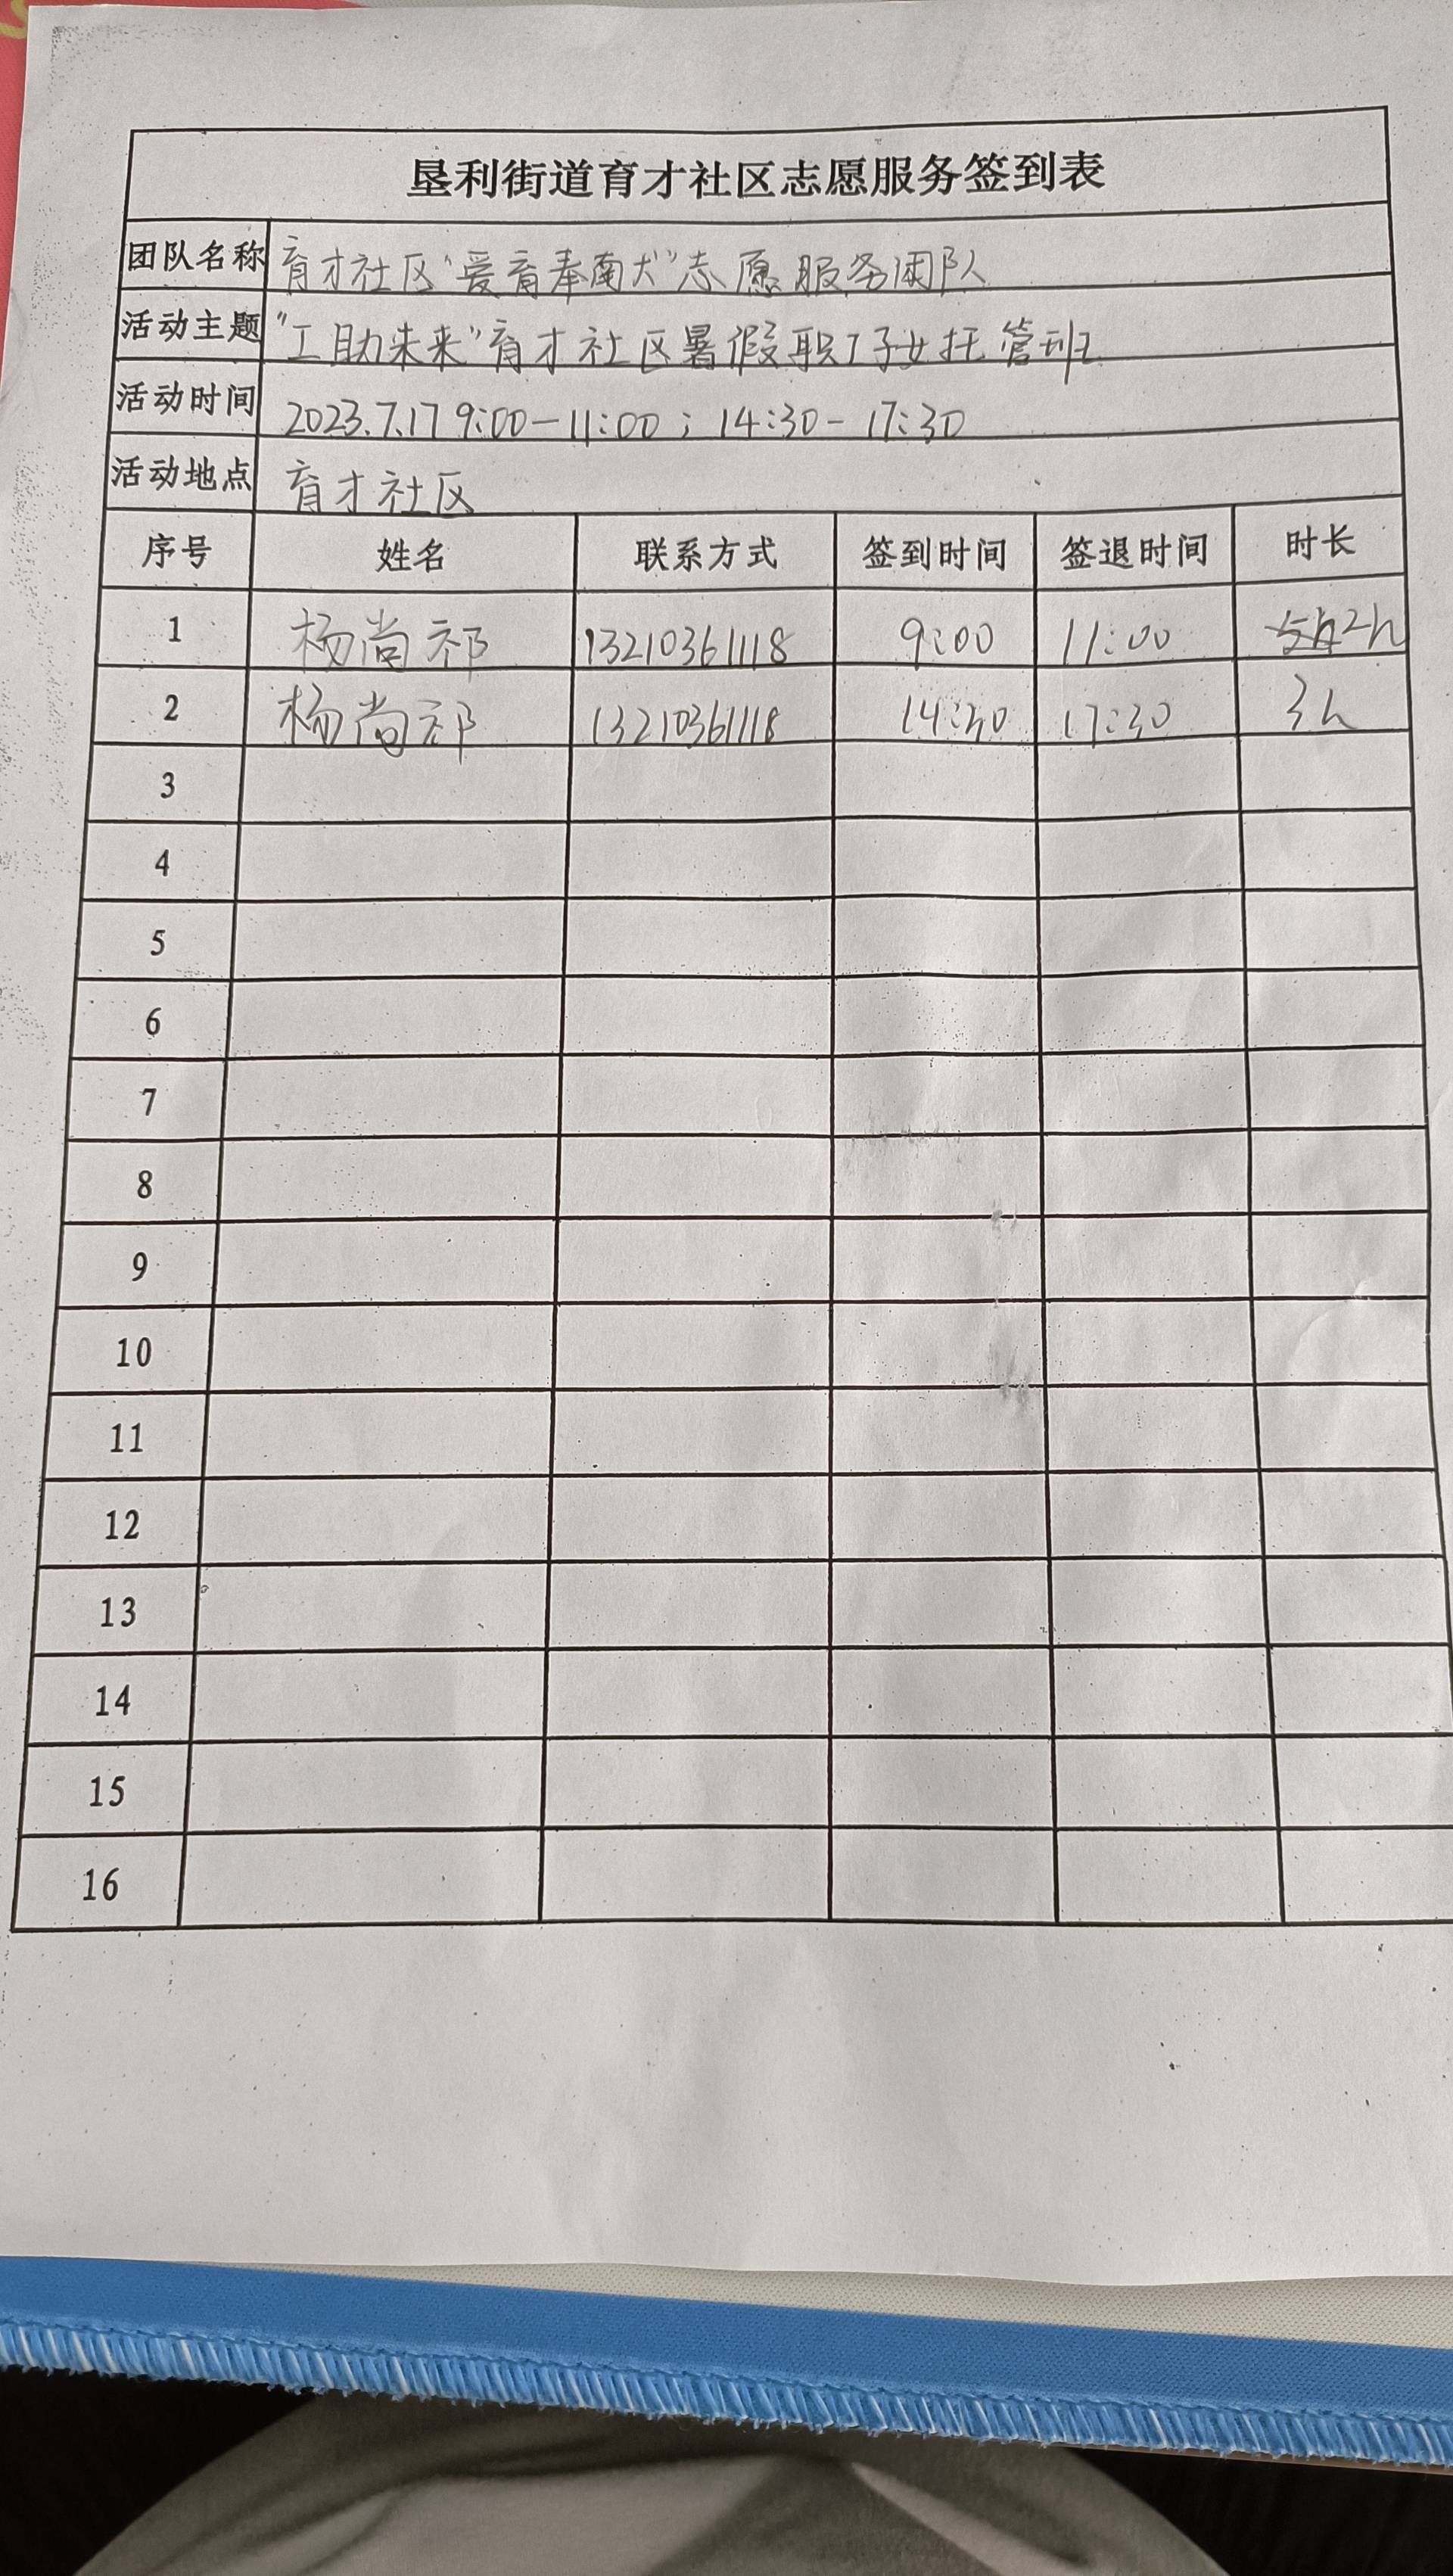 垦利街道育才社区志愿服务签到表
团队名称 育才社区“爱育奉南犬”志愿服务团队
活动主题 “工助未来”育才社区暑假职工子女托管班
活动时间 2023.7.17 9:00-11:00；14:30-17:30
活动地点 育才社区
序号 姓名 联系方式 签到时间 签退时间 时长
1 杨尚祁 13210361118 9:00 11:00 2h
2 杨尚祁 13210361118 14:30 17:30 3h
3
4
5
6
7
8
9
10
11
12
13
14
15
16